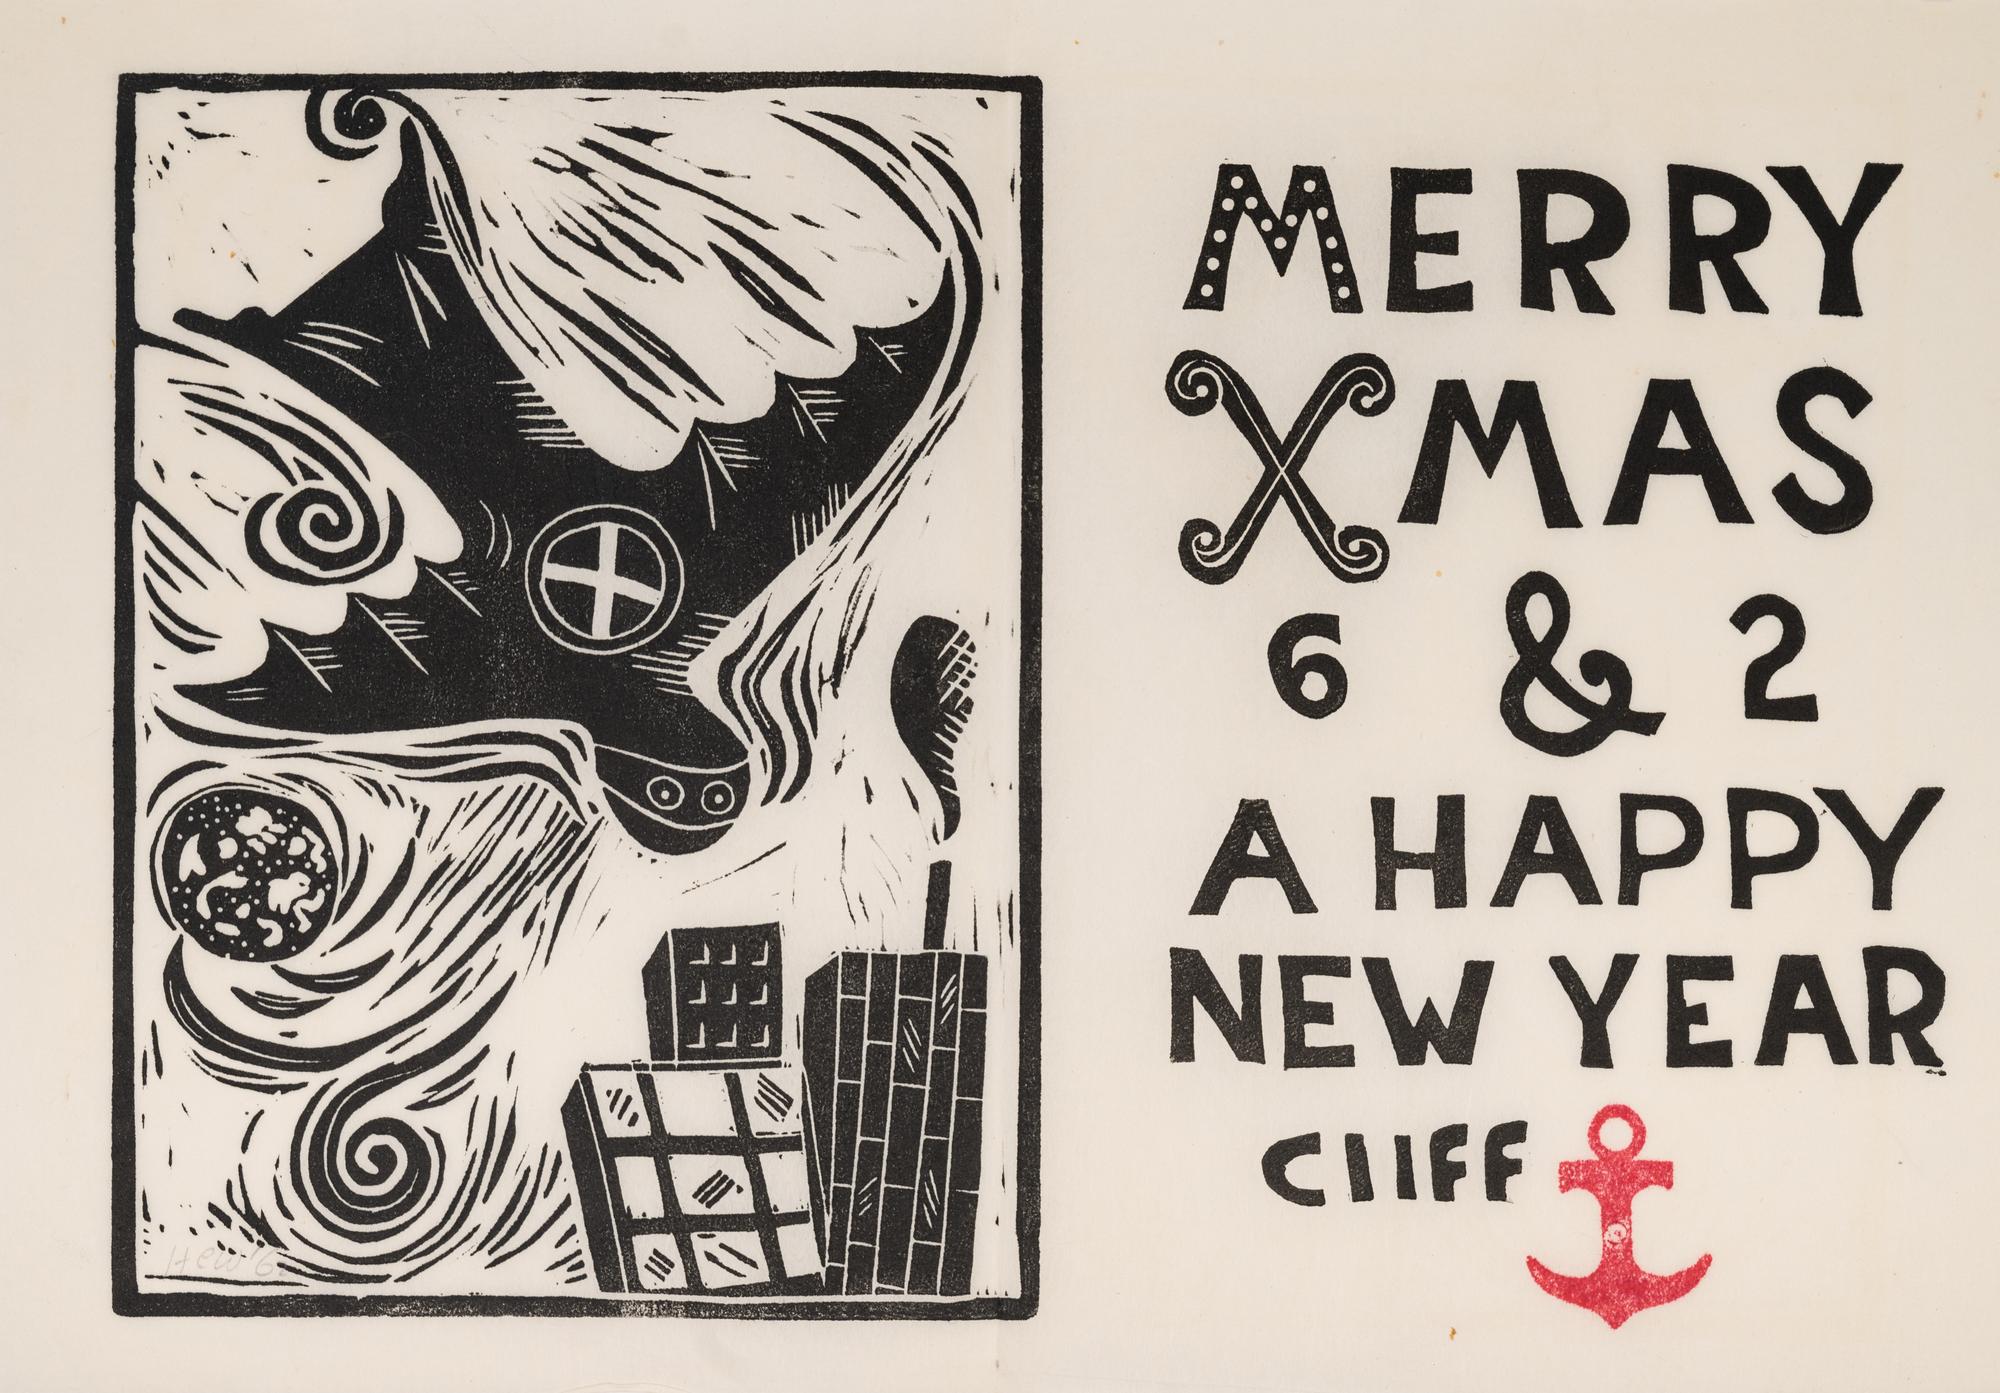 MERRY
XMAS
6 & 2
A HAPPY
NEW YEAR
CLIFF
Hew '62